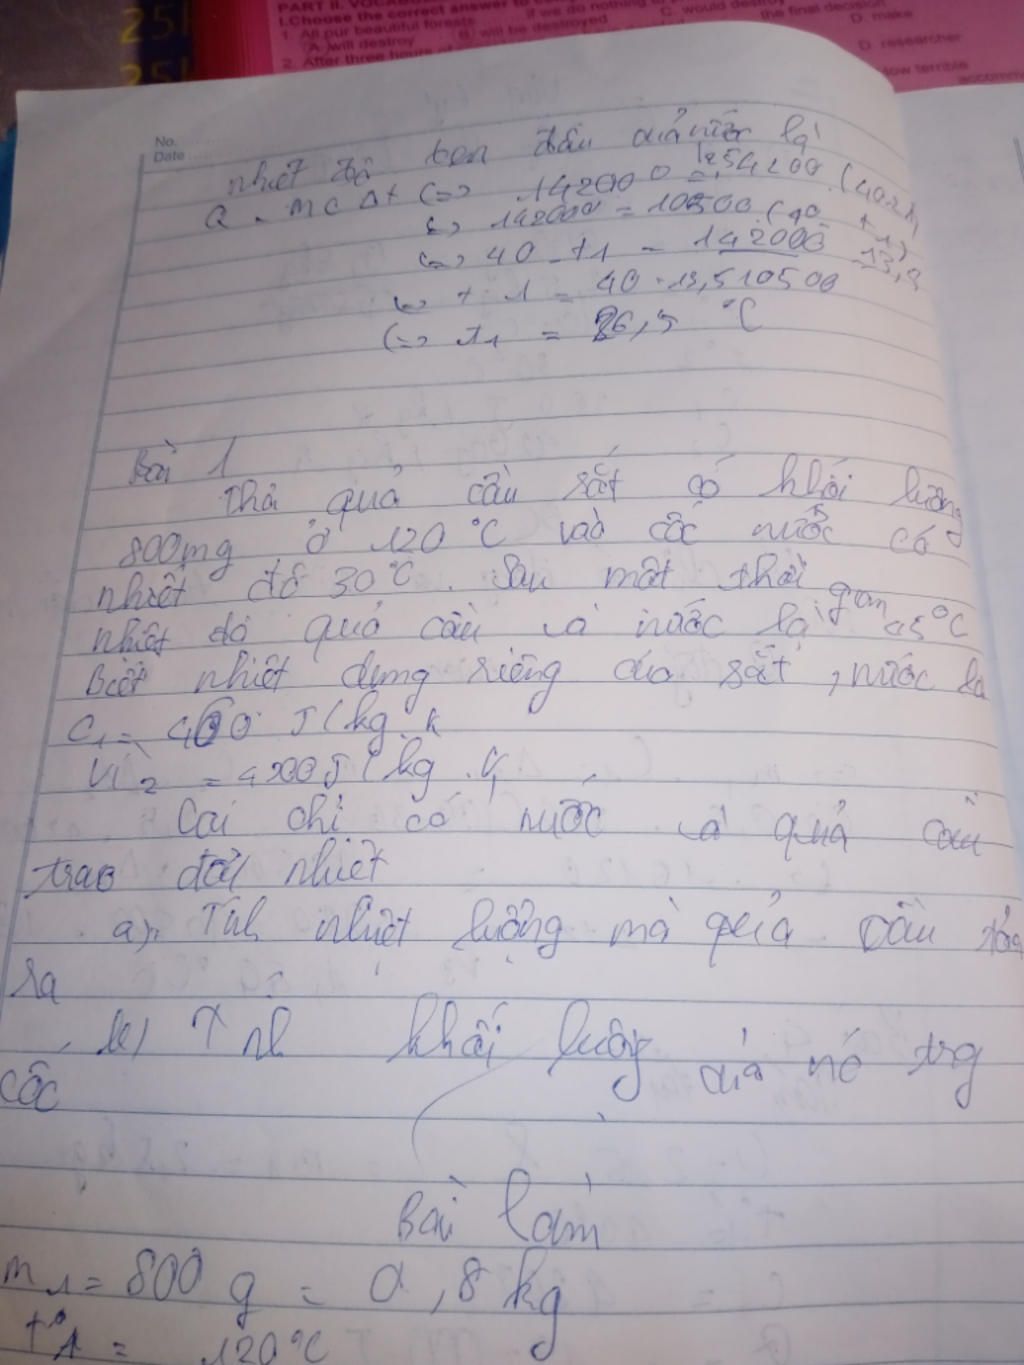 PART II. VOCABU
I.Choose the correct answer to
1. All our beautiful forests if we do nothing to
A. will destroy B. will be destroyed C. would destroy
the final decision
D. make
2. After three hours of
D. researcher
How terrible
accomm
No.
Date
nhiệt độ ban đầu của nước là
Q = mc Δt (=> 142000 = 2,5 4200 (40
(=> 142000 = 10500 (40 t1)
(=> 40 - t1 = 142000 = 13,5
t 1 = 40 - 13,5 10500
(=> t1 = 26,5 °C
Bài 1
Thả quả cầu sắt có khối lượng
800mg ở 120 °C vào cốc nước có
nhiệt độ 30°C. Sau một thời gian
nhiệt độ quả cầu và nước là 45°C
Biết nhiệt dung riêng của sắt, nước là
C1 = 460 J ( kg. k
2 = 4200 J ( kg .
Coi chỉ có nước và quả cầu
trao đổi nhiệt
a) Tính nhiệt lượng mà quả cầu tỏa
ra
b) Tính khối lượng của nó trg
cốc
Bài làm
m1 = 800 g = 0,8 kg
t°1 = 120°C